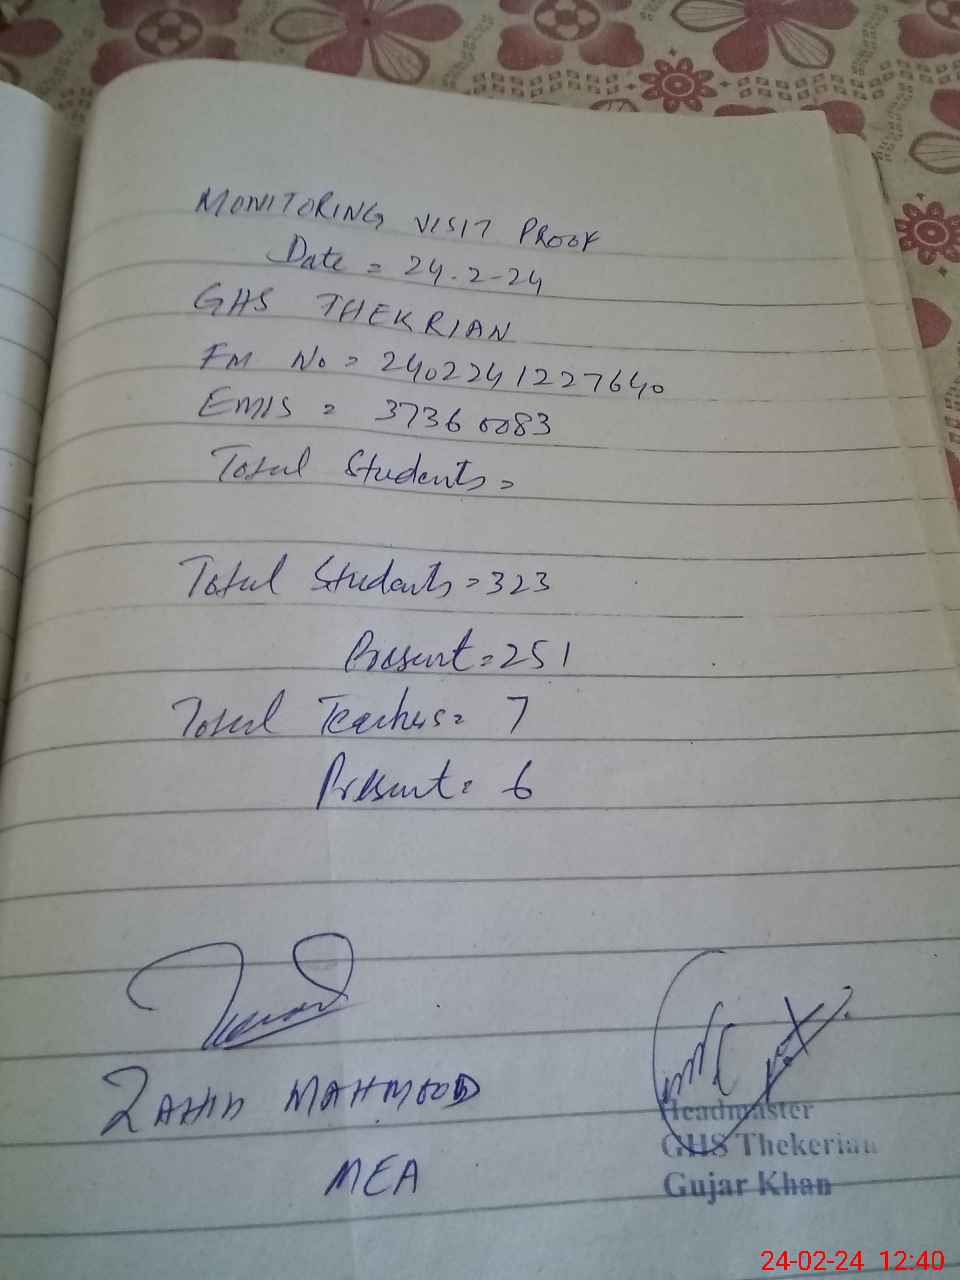 MONITORING VISIT PROOF
Date = 24-2-24
GHS THEKRIAN
FM No = 2402241227640
EMIS = 37360083
Total Students =
Total Students = 323
Present = 251
Total Teachers = 7
Present = 6
ZAHID MAHMOOD
MEA
Headmaster
GHS Thekerian
Gujar Khan
24-02-24 12:40